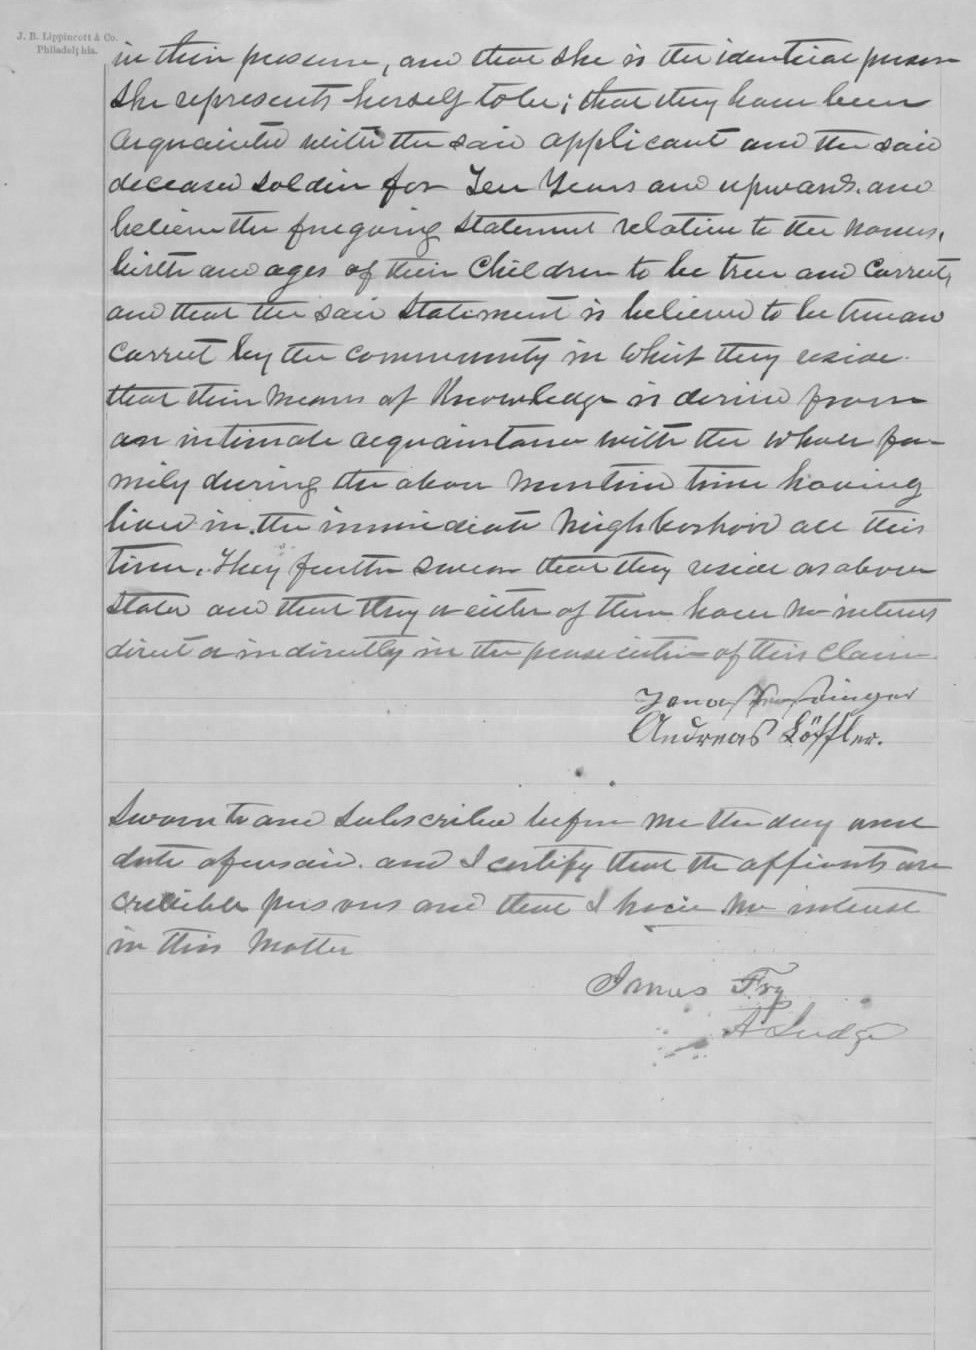 J. B. Lippincott & Co.
Philadelphia.
in their presence, and that she is the identical person
She represents herself to be; that they have been
acquainted with the said applicant and the said
deceased Soldier for Ten Years and upwards. and
believe the foregoing Statement relative to the names,
birth and ages of their Children to be true and Correct,
and that the said Statement is believed to be true and
Correct by the community in which they reside.
that their means of Knowledge is derived from
an intimate acquaintance with the whole fa-
mily during the above mentioned time having
lived in the immediate Neighborhood all this
time. They further swear that they reside as above
Stated and that they or either of them have no interest
direct or indirectly in the prosecution of this Claim.
Andreas Löffler.
Sworn to and Subscribed before me the day and
date aforesaid. and I certify that the affiants are
credible persons and that I have no interest
in this Matter
James Fry
A Judge